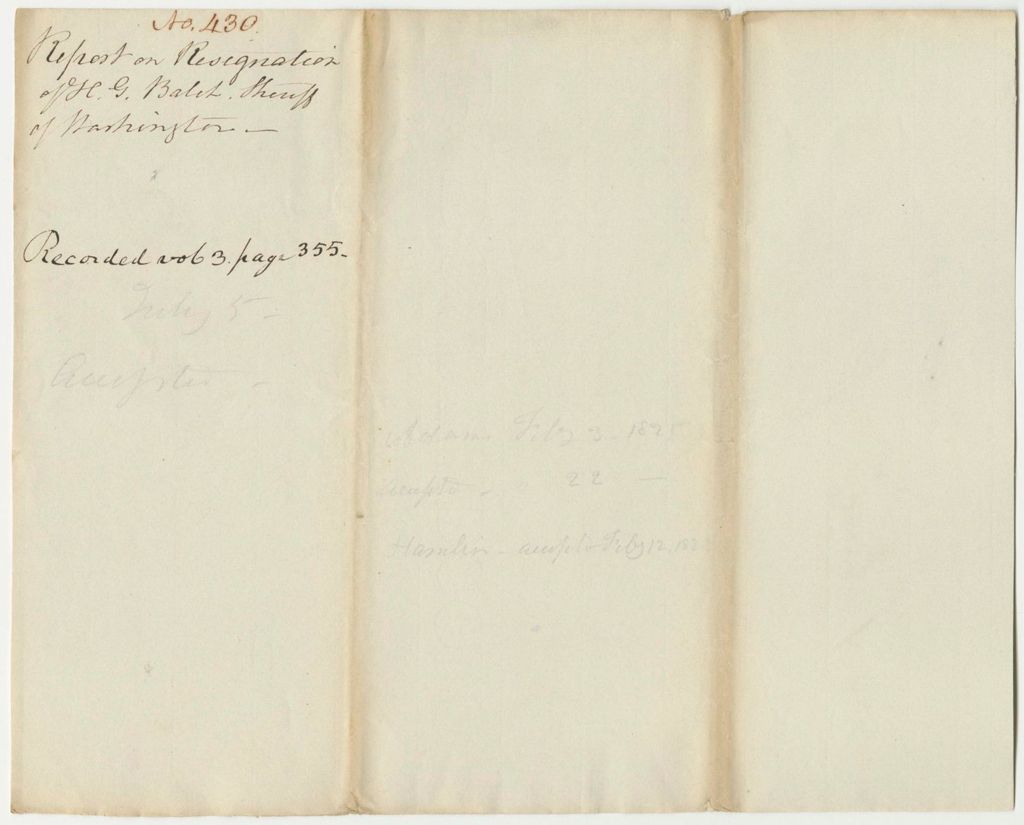 No. 430.
Report on Resignation
of H. G. Balch. Sheriff
of Washington. —
Recorded vol 3. page 355-
July 5 -
Accepted -
Adams Feby 3 - 182
accepte - 22 —
Hamlin - accepte Feby 12, 182